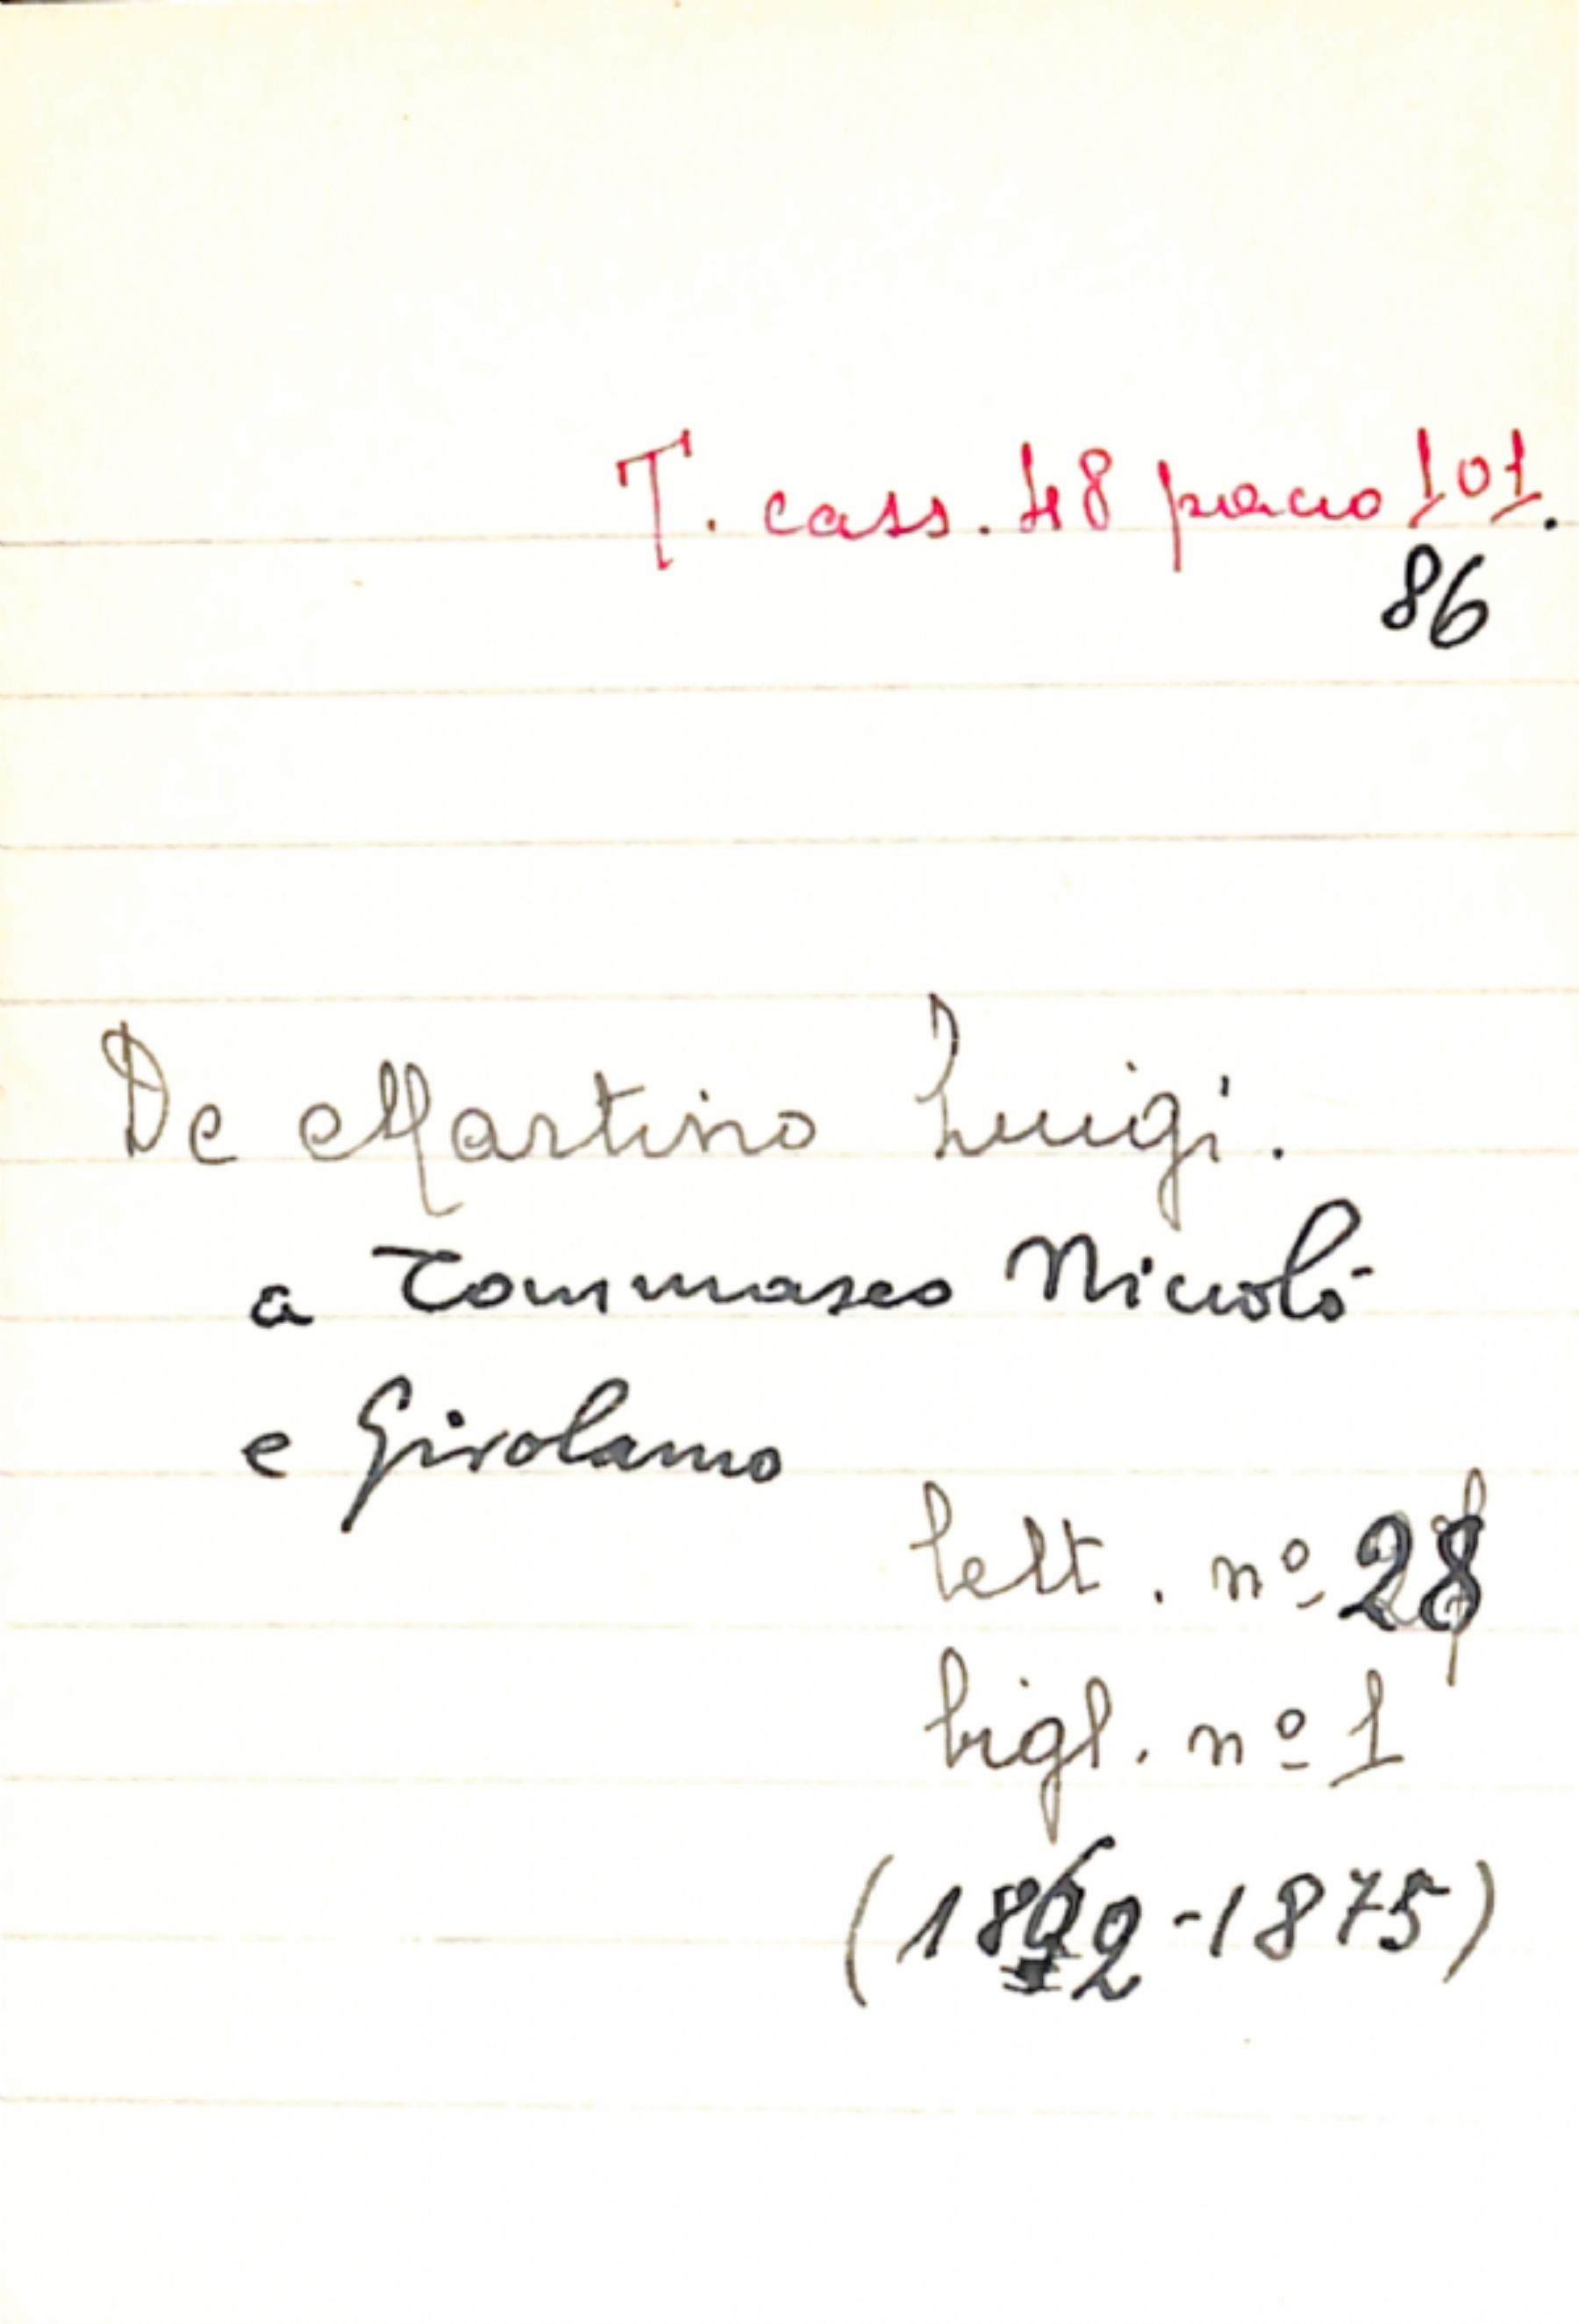 T. cass. 48 pacco 101.
86
De Martino Luigi.
a Tommaseo Niccolò
e Girolamo
lett. nº 28
bigl. nº 1
(1862-1875)